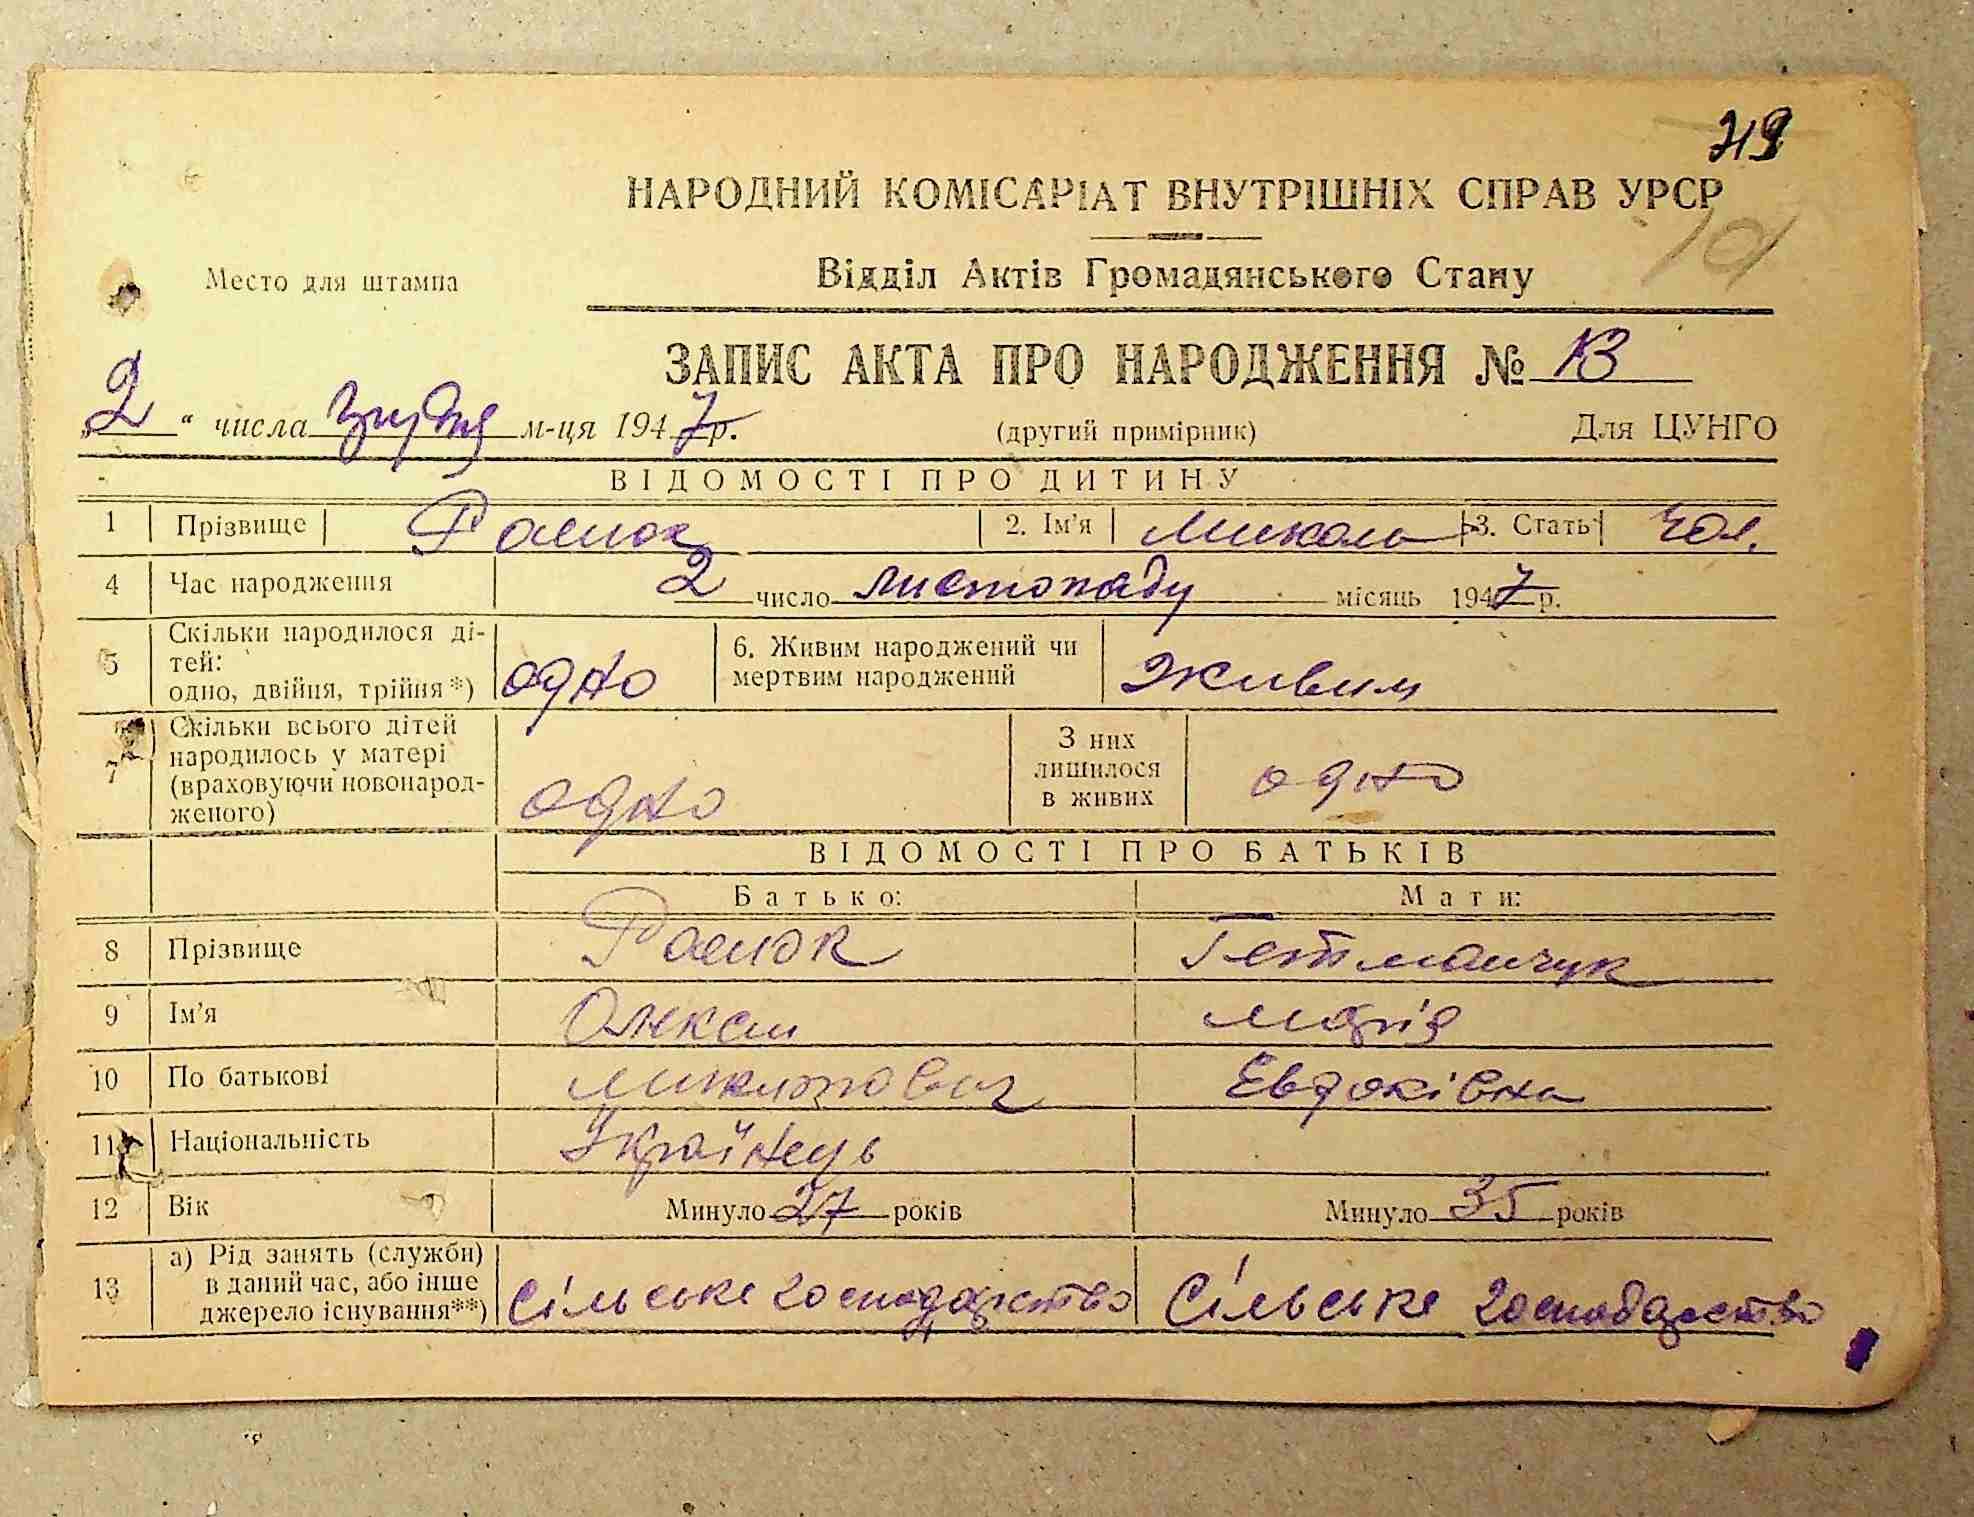 НАРОДНИЙ КОМІСАРІАТ ВНУТРІШНІХ СПРАВ УРСР
Место для штампа
Відділ Актів Громадянського Стану
ЗАПИС АКТА ПРО НАРОДЖЕННЯ № 13
„2“ числа грудня м-ця 1947р. (другий примірник) Для ЦУНГО
ВІДОМОСТІ ПРО ДИТИНУ
1 Прізвище 2. Ім'я Микола 3. Стать чол.
4 Час народження 2 число листопаду місяць 1947 р.
5 Скільки народилося ді-
тей:
одно, двійня, трійня*) одно 6. Живим народжений чи
мертвим народжений Живим
7 Скільки всього дітей
народилось у матері
(враховуючи новонарод-
женого) одно З них
лишилося
в живих одно
ВІДОМОСТІ ПРО БАТЬКІВ
Батько: Мати:
8 Прізвище Гетманчук
9 Ім'я Марія
10 По батькові Евдоківна
11 Національність Українець
12 Вік Минуло 27 років Минуло 35 років
13 а) Рід занять (служби)
в даний час, або інше
джерело існування**) Сільське господарство Сільське господарство